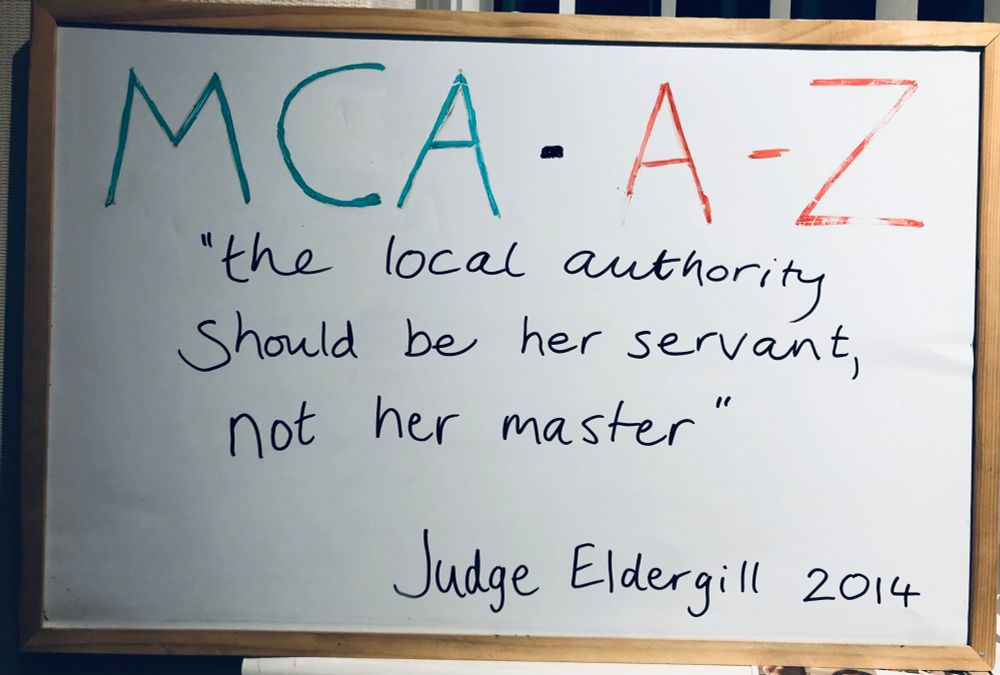 MCA - A - Z
"the local authority
should be her servant,
not her master"
Judge Eldergill 2014